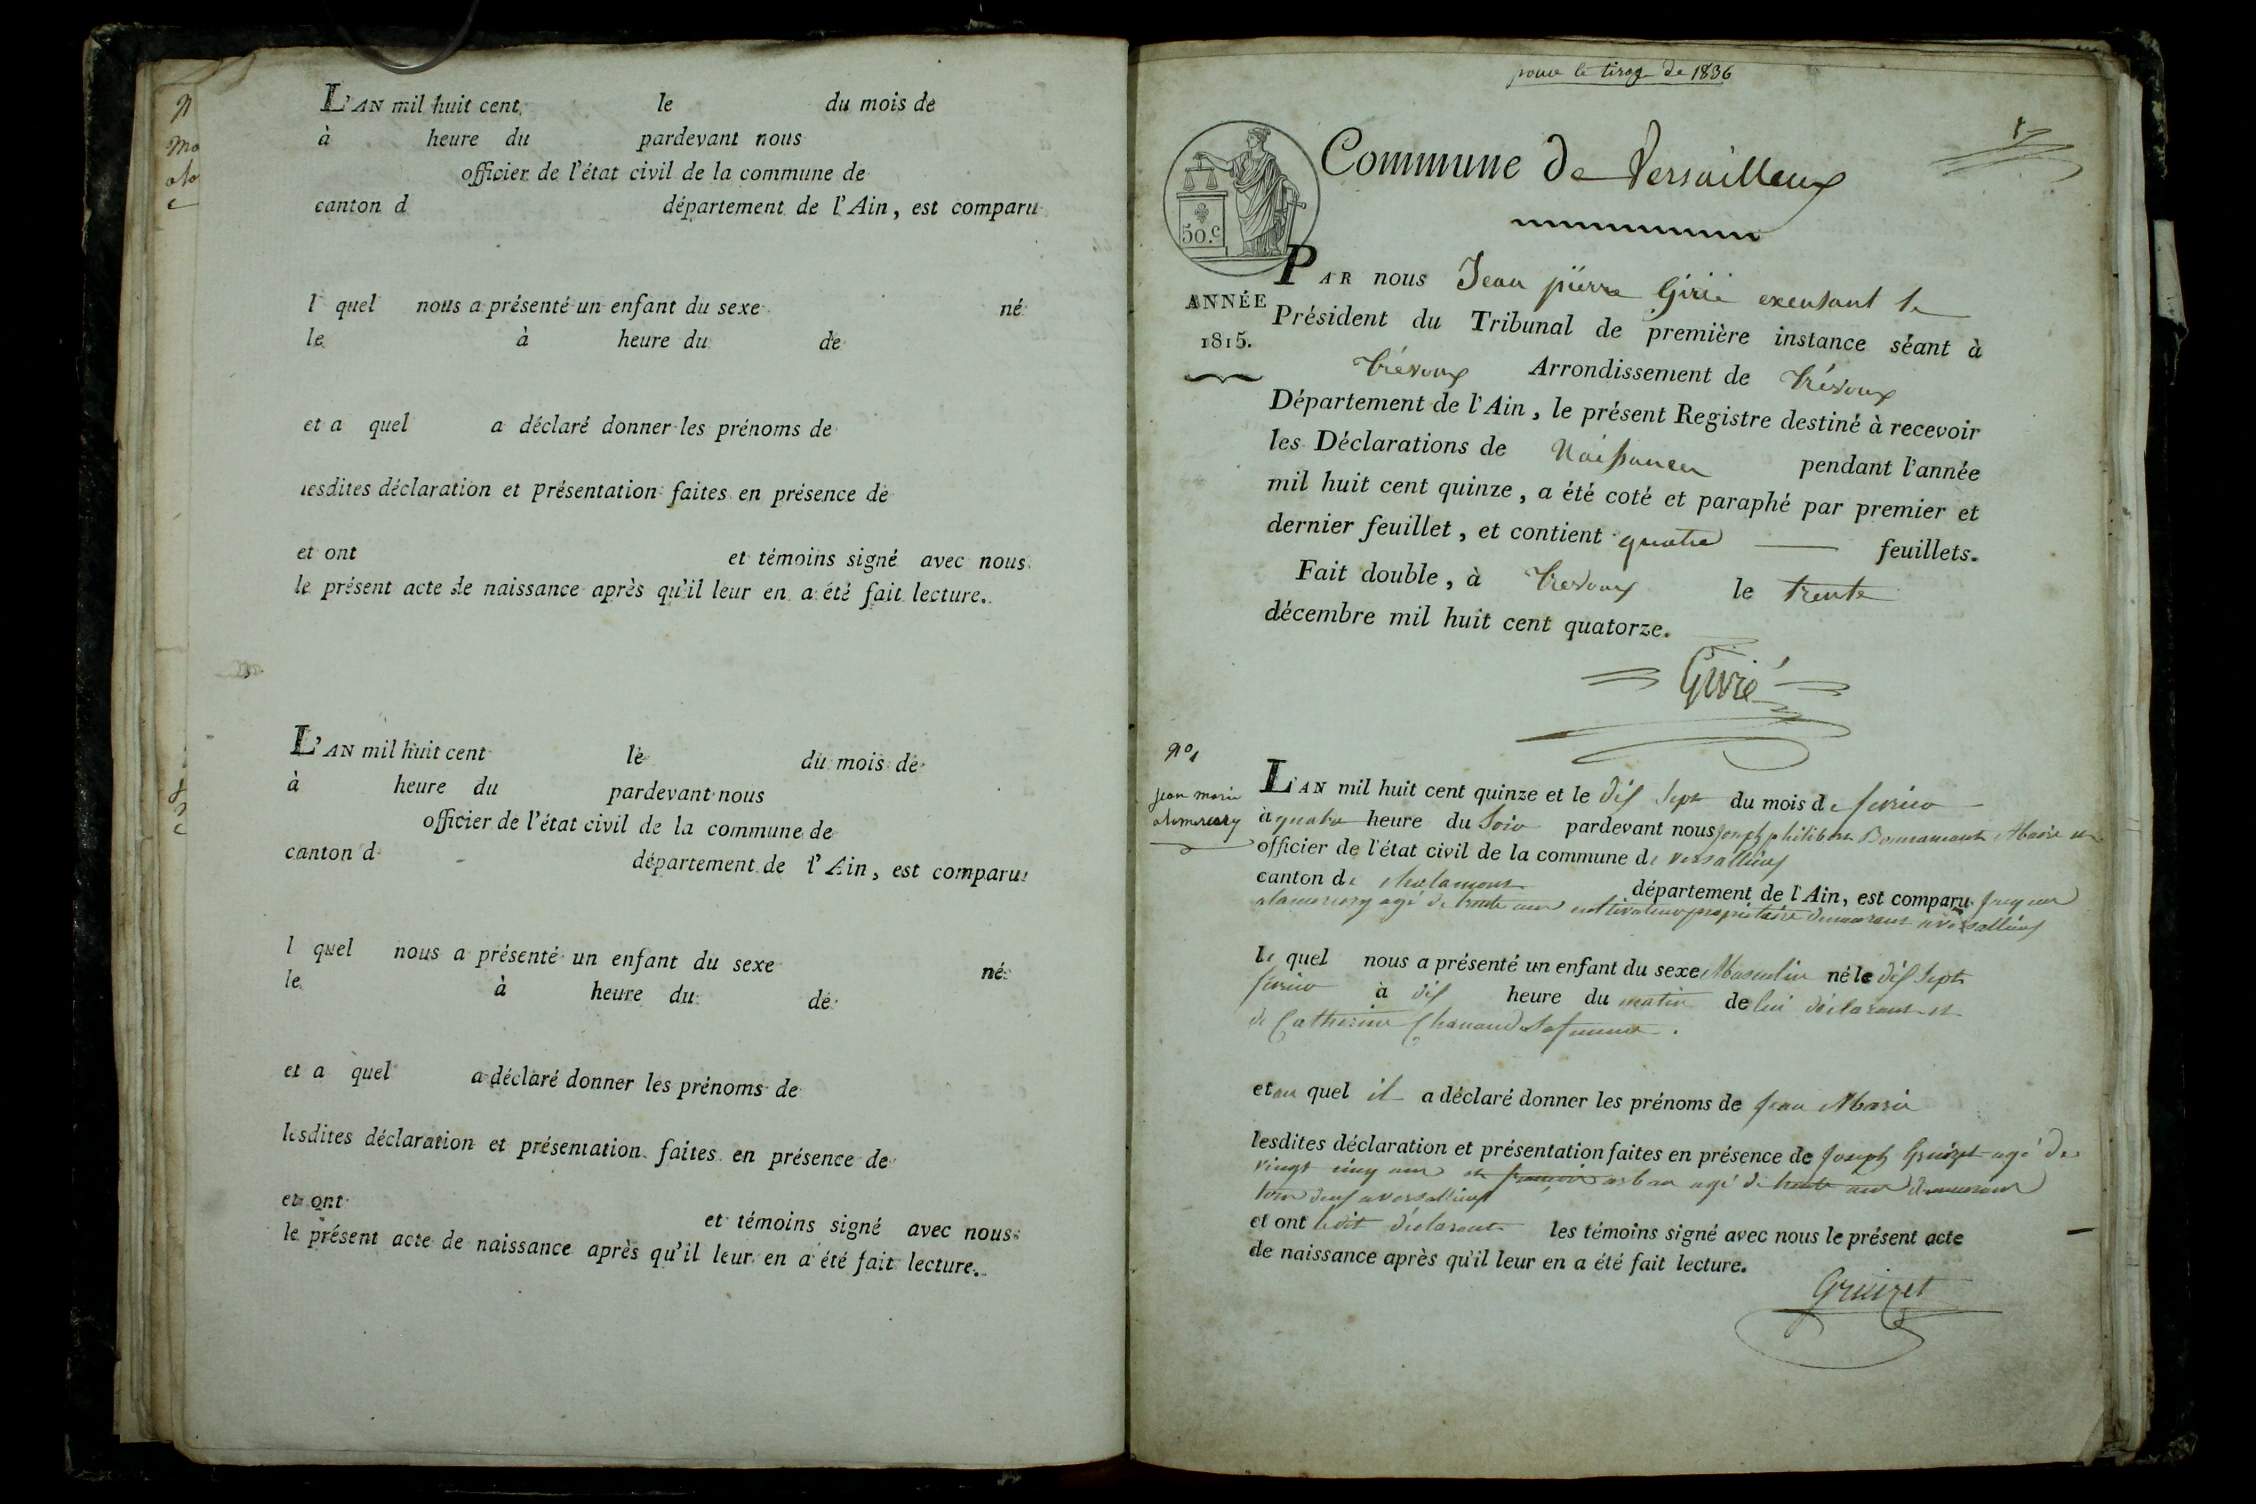 L'AN mil huit cent le du mois de
à heure du pardevant nous
officier de l'état civil de la commune de
canton d département de l'Ain, est comparu
l quel nous a présenté un enfant du sexe né
le à heure du de
et a quel a déclaré donner les prénoms de
lesdites déclaration et présentation faites en présence de
et ont et témoins signé avec nous
le présent acte de naissance après qu'il leur en a été fait lecture.
L'AN mil huit cent le du mois de
à heure du pardevant nous
officier de l'état civil de la commune de
canton d département de l'Ain, est comparu
l quel nous a présenté un enfant du sexe né
le à heure du de
et a quel a déclaré donner les prénoms de
lesdites déclaration et présentation faites en présence de
et ont et témoins signé avec nous
le présent acte de naissance après qu'il leur en a été fait lecture.
pour le tirage de 1836
Commune de Versailleux
50.c
PAR nous Jean pierre Girié exerçant le
ANNÉE
1815.
Président du Tribunal de première instance séant à
Trévoux Arrondissement de Trévoux
Département de l'Ain, le présent Registre destiné à recevoir
les Déclarations de Naissances pendant l'année
mil huit cent quinze, a été coté et paraphé par premier et
dernier feuillet, et contient quatre feuillets.
Fait double, à Trevoux le trente
décembre mil huit cent quatorze.
Girié
No 1
jean marie
alamercery
L'AN mil huit cent quinze et le dix sept du mois de fevrier
à quatre heure du soir pardevant nous joseph philibert Maire et
officier de l'état civil de la commune de versallieux
canton de chalamont département de l'Ain, est comparu jacques
alamercery agé de trente ans cultivateur propriétaire demeurant a versallieux
le quel nous a présenté un enfant du sexe Masculin né le dix sept
fevrier à dix heure du matin de lui déclarant et
de Catherine Chanaud sa femme.
et au quel il a déclaré donner les prénoms de jean Marie
lesdites déclaration et présentation faites en présence de joseph Gruizet agé de
vingt cinq ans et françois agé de trente ans demeurant
tous deux a versallieux
et ont ledit déclarant les témoins signé avec nous le présent acte
de naissance après qu'il leur en a été fait lecture.
Gruizet